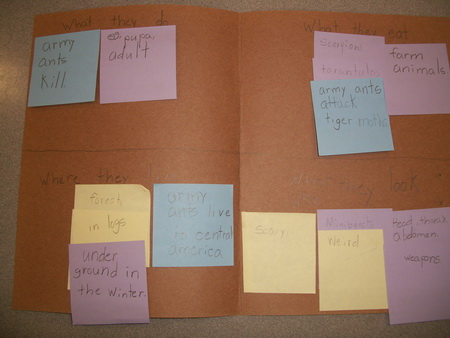 What they do
army
ants
Kill.
pupa,
adult
What they eat
scorpions
tarantulas
farm
animals
army ants
attack
tiger moths
Where they
forest
in logs
under
ground in
the winter.
army
ants live
in central
america
they look
scary
weird
Head, thorax
abdomen
weapons